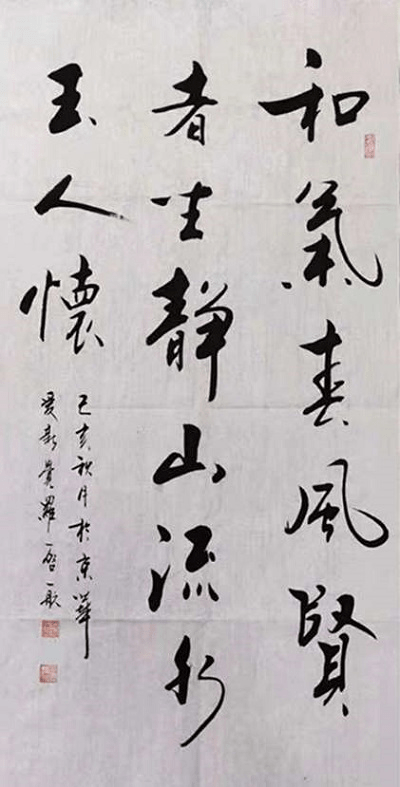 和氣春風賢
者坐靜山流水
玉人懷
己亥秋月於京華
愛新覺羅